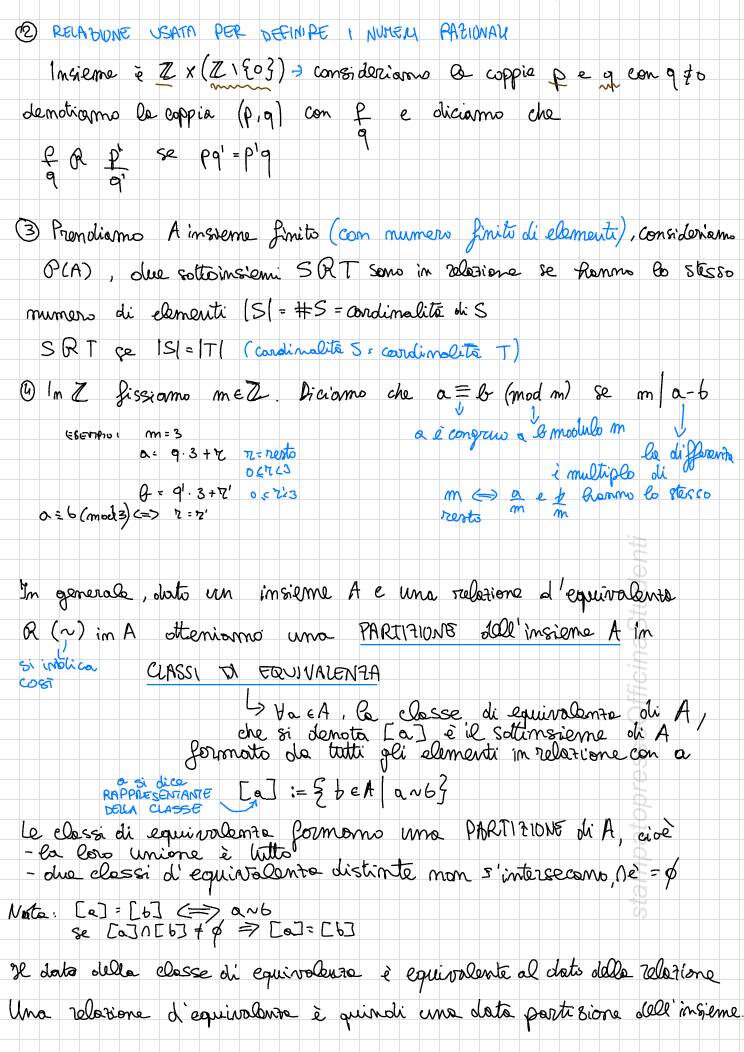 ② RELAZIONE USATA PER DEFINIRE I NUMERI RAZIONALI
Insieme è ℤ × (ℤ \ {0}) → consideriamo la coppia p e q con q ≠ 0
denotiamo la coppia (p,q) con p/q e diciamo che
p/q R p'/q' se pq' = p'q
③ Prendiamo A insieme finito (con numero finito di elementi), consideriamo
P(A), due sottoinsiemi S R T sono in relazione se hanno lo stesso
numero di elementi |S| = #S = cardinalità di S
S R T se |S| = |T| (cardinalità S = cardinalità T)
④ In ℤ fissiamo m ∈ ℤ. Diciamo che a ≡ b (mod m) se m | a-b
a è congruo a b modulo m
ESEMPIO: m = 3
a = q·3 + r r = resto
0 ≤ r < 3
b = q'·3 + r' 0 ≤ r' < 3
a ≡ b (mod 3) <=> r = r'
la differenza
è multiplo di
m <=> a/m e b/m hanno lo stesso
resto
In generale, dato un insieme A e una relazione d'equivalenza
R (~) in A otteniamo una PARTIZIONE dell'insieme A in
si indica
così
CLASSI DI EQUIVALENZA
↳ ∀a ∈ A, la classe di equivalenza di A,
che si denota [a] è il sottinsieme di A
formato da tutti gli elementi in relazione con a
a si dice
RAPPRESENTANTE
DELLA CLASSE
[a] := { b ∈ A | a ~ b }
Le classi di equivalenza formano una PARTIZIONE di A, cioè
- la loro unione è tutto
- due classi d'equivalenza distinte non s'intersecano, ∩ è = ∅
Nota: [a] = [b] <=> a ~ b
se [a] ∩ [b] ≠ ∅ => [a] = [b]
Il dato della classe di equivalenza è equivalente al dato della relazione
Una relazione d'equivalenza è quindi una data partizione dell'insieme.